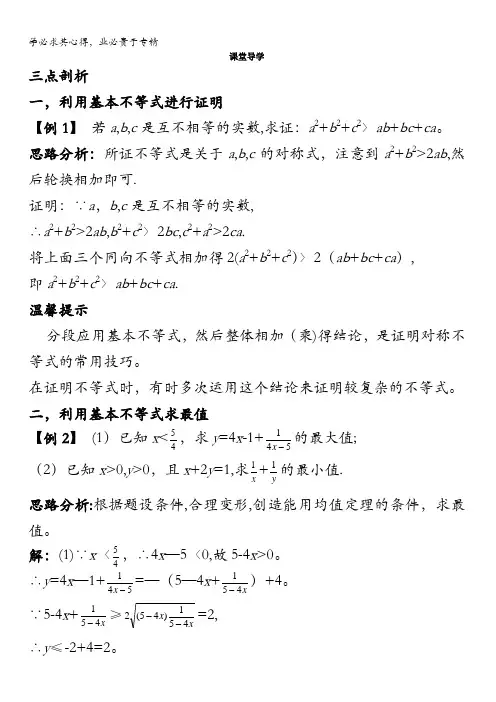 学必求其心得，业必贵于专精
课堂导学
三点剖析
一，利用基本不等式进行证明
【例1】 若a,b,c是互不相等的实数,求证：a²+b²+c²〉ab+bc+ca。
思路分析：所证不等式是关于a,b,c的对称式，注意到a²+b²>2ab,然
后轮换相加即可.
证明：∵a，b,c是互不相等的实数,
∴a²+b²>2ab,b²+c²〉2bc,c²+a²>2ca.
将上面三个同向不等式相加得2(a²+b²+c²)〉2（ab+bc+ca）,
即a²+b²+c²〉ab+bc+ca.
温馨提示
分段应用基本不等式，然后整体相加（乘)得结论，是证明对称不
等式的常用技巧。
在证明不等式时，有时多次运用这个结论来证明较复杂的不等式。
二，利用基本不等式求最值
【例2】 (1）已知x<5/4，求y=4x-1+1/(4x−5)的最大值;
（2）已知x>0,y>0，且x+2y=1,求1/x+1/y的最小值.
思路分析:根据题设条件,合理变形,创造能用均值定理的条件，求最
值。
解：(1)∵x〈5/4，∴4x—5〈0,故5-4x>0。
∴y=4x—1+1/(4x−5)=—（5—4x+1/(5−4x)）+4。
∵5-4x+1/(5−4x)≥2√((5−4x)1/(5−4x))=2,
∴y≤-2+4=2。